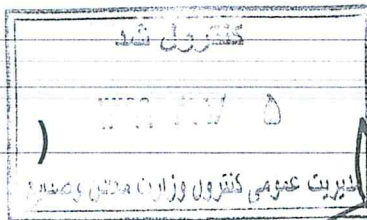 کنترول شد
۵
مدیریت عمومی کنترول وزارت معادن وصنایع